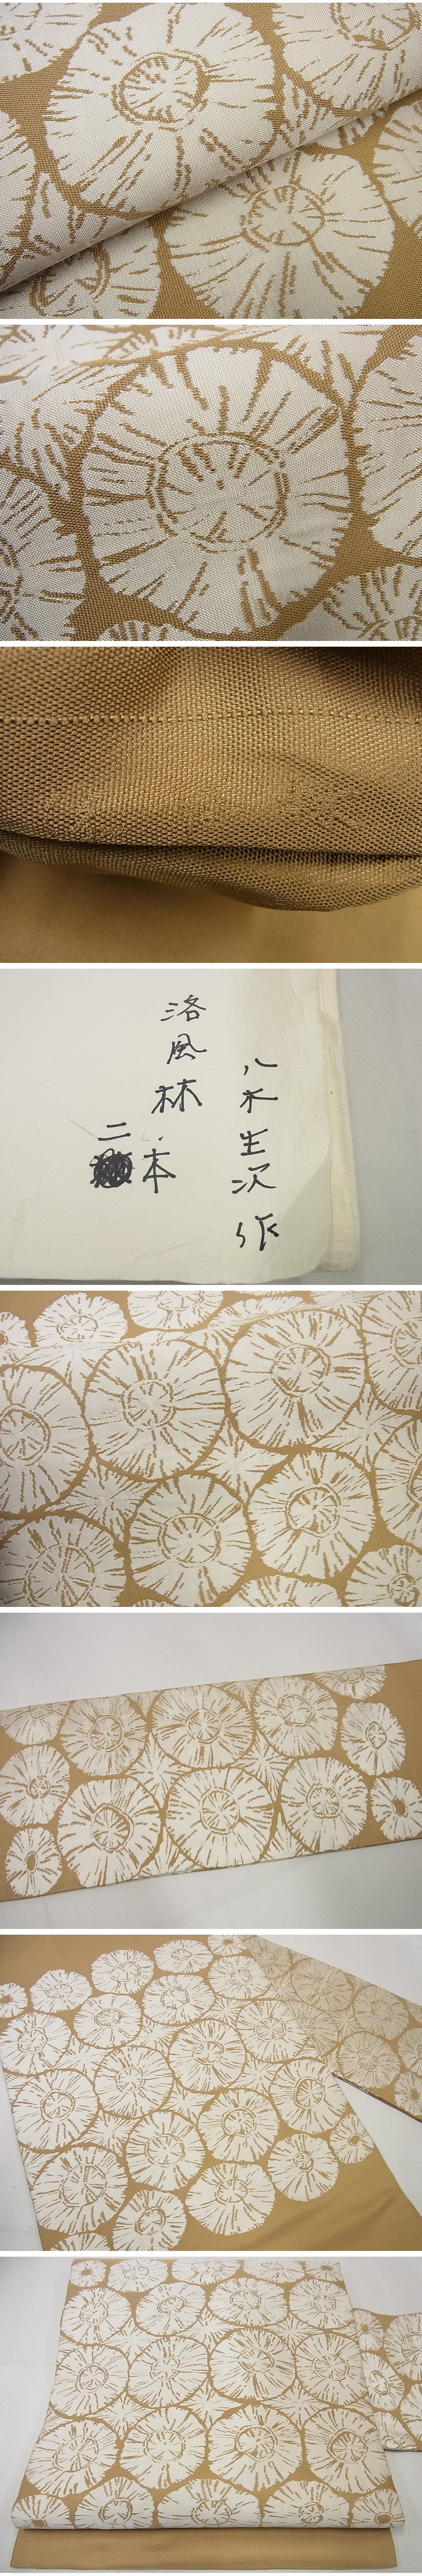 八木生次作
洛風林
二本